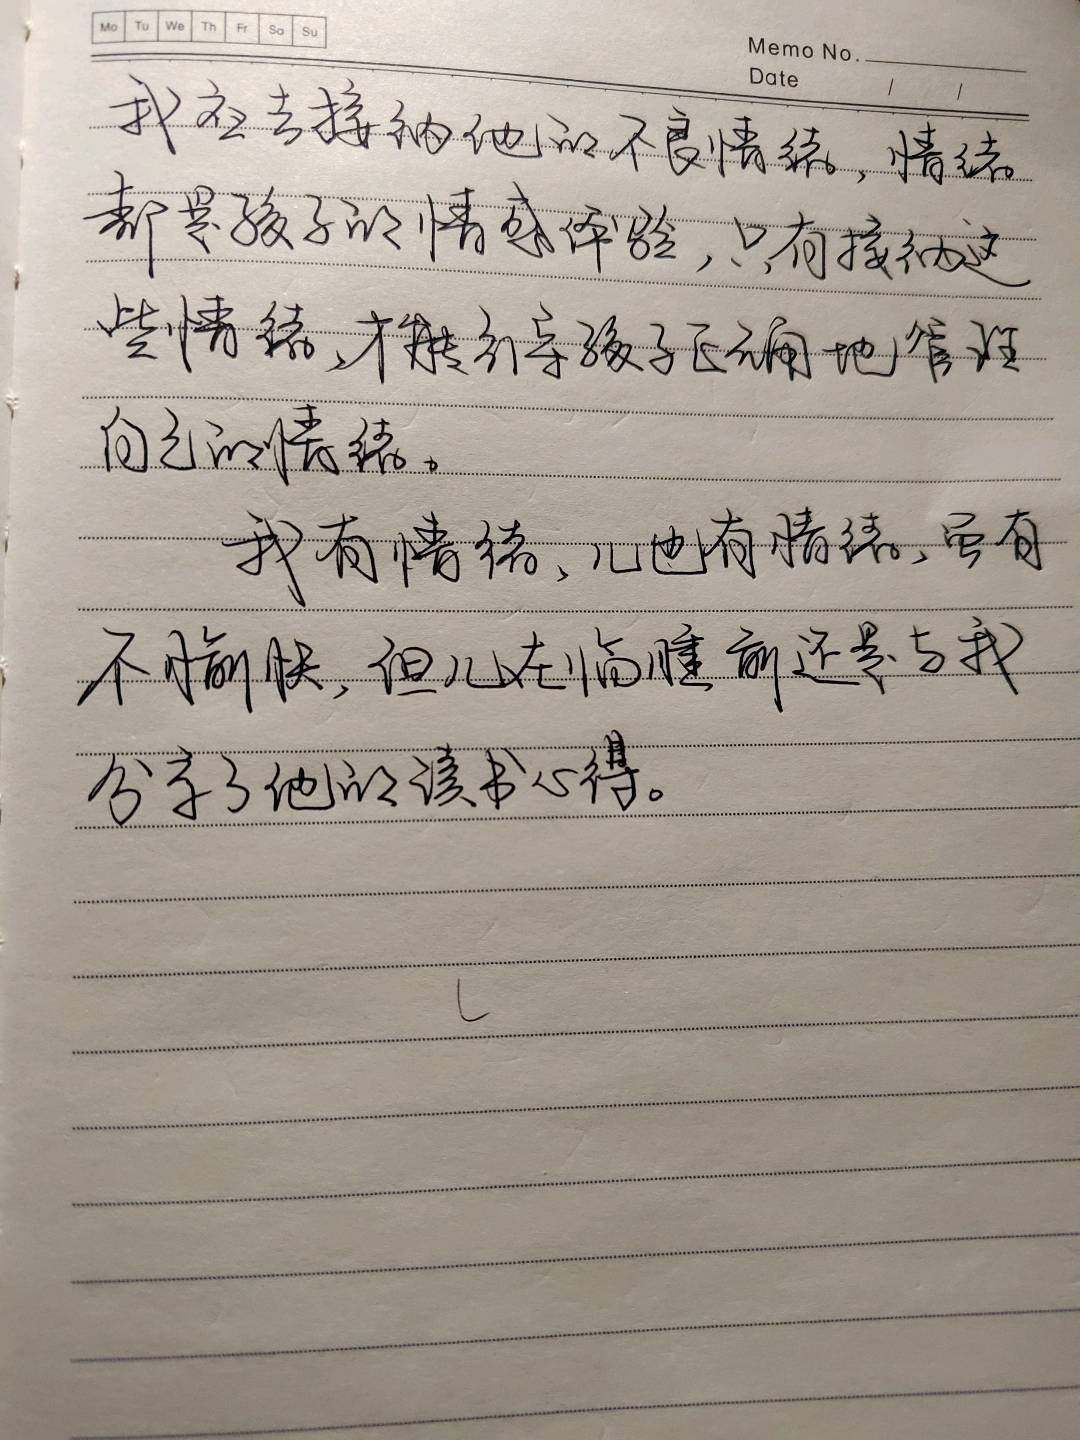 Mo Tu We Th Fr Sa Su
Memo No.
Date / /
我应去接纳他的不良情绪，情绪
都是孩子的情感体验，只有接纳这
些情绪，才能引导孩子正确地管理
自己的情绪。
我有情绪，儿也有情绪，虽有
不愉快，但儿在临睡前还是与我
分享了他的读书心得。